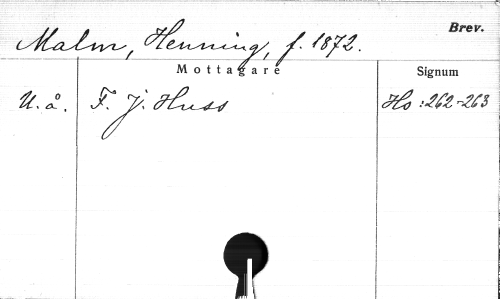 Brev.
Malm, Henning, f. 1872.
Mottagare Signum
U. å. F. J. Huss Ho: 262-263